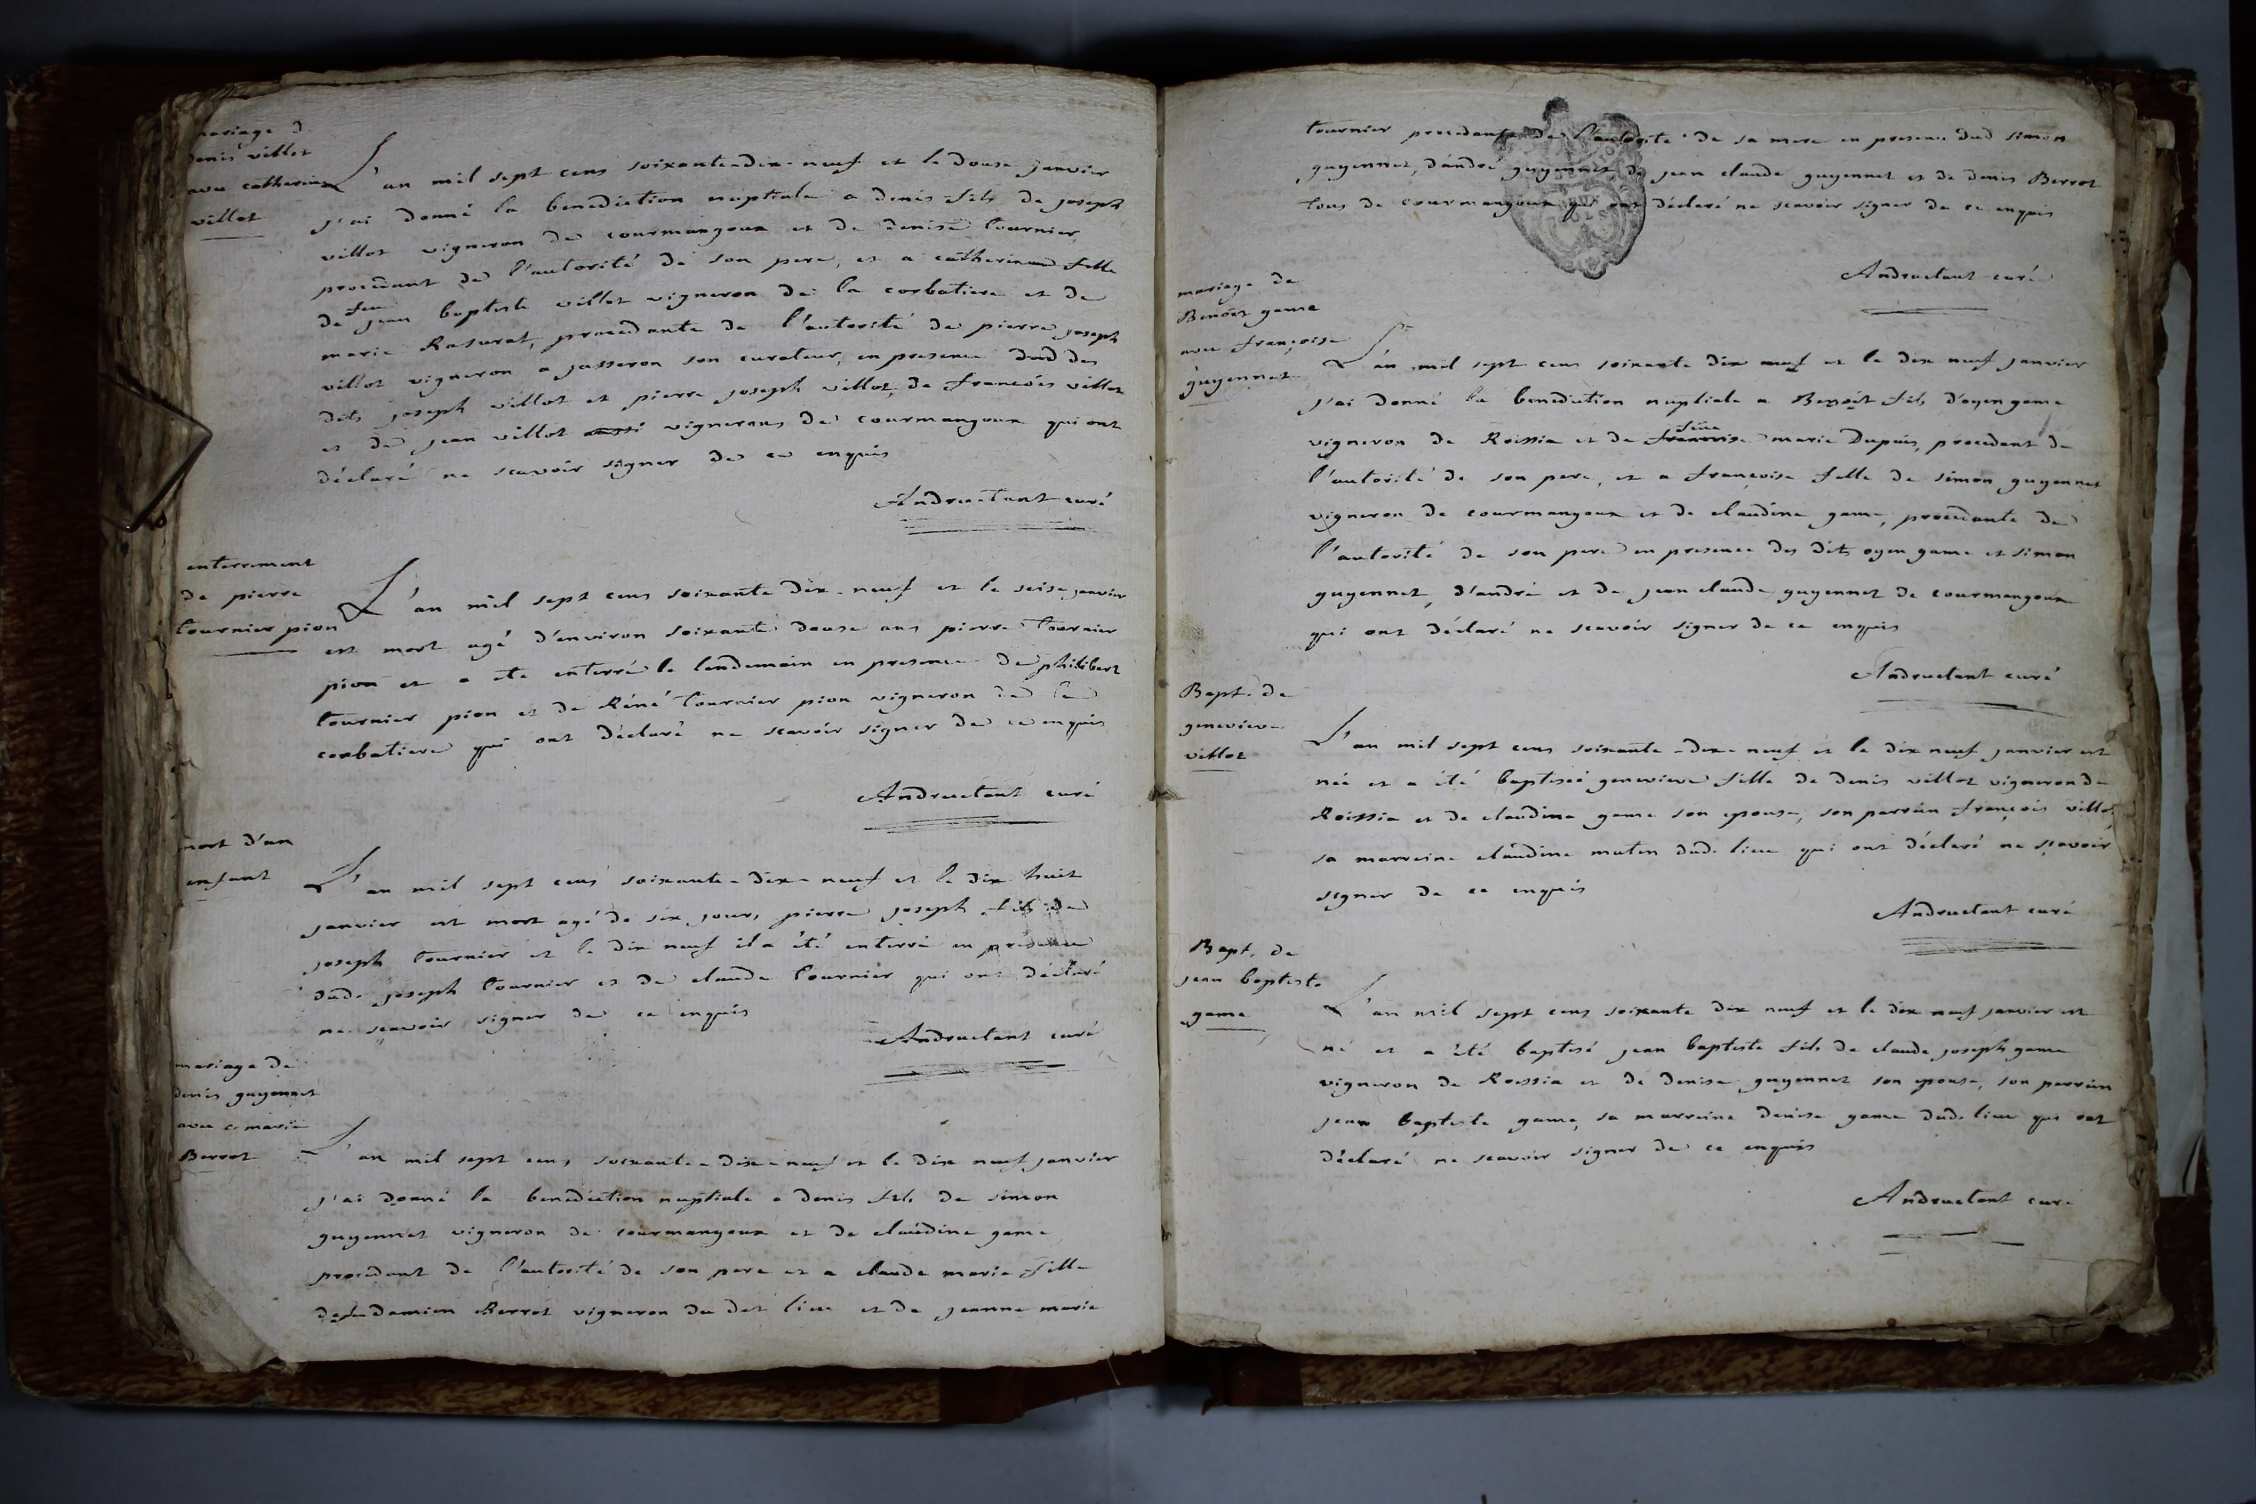 mariage d
denis villot
avec catherine
villot
L'an mil sept cens soixante-dix-neuf et le douse janvier
j'ai donné la benediction nuptiale a denis fils de joseph
villot vigneron de courmangoux et de denise tournier
procedant de l'autorité de son pere, et a catherine fille
de feu jean baptiste villot vigneron de la corbatiere et de
marie Rasurat, procedante de l'autorité de pierre joseph
villot vigneron a jasseron son curateur, en presence dud des
dits joseph villot et pierre joseph villot, de francois villot
et de jean villot aussi vignerons de courmangoux qui ont
déclaré ne scavoir signer de ce enquis
Andructant curé
enterrement
de pierre
tournier pion
L'an mil sept cens soixante dix-neuf et le seise janvier
est mort agé d'environ soixante douse ans pierre tournier
pion et a ete enterré le lendemain en presence de philibert
tournier pion et de Réné tournier pion vigneron de la
corbatiere qui ont déclaré ne scavoir signer de ce enquis
Andructant curé
mort d'un
enfant
L'an mil sept cens soixante-dix-neuf et le dix huit
janvier est mort agé de six jours pierre joseph fils de
joseph tournier et le dix neuf il a été enterré en presence
dud. joseph tournier et de claude tournier qui ont déclaré
ne scavoir signer de ce enquis
Andructant curé
mariage de
denis guyennet
avec c. marie
Berrot
L'an mil sept cens soixante-dix-neuf et le dix neuf janvier
j'ai donné la benediction nuptiale a denis fils de simon
guyennet vigneron de courmangoux et de claudine game
procedant de l'autorité de son pere et a claude marie fille
de feu damien Berrot vigneron du dit lieu et de jeanne marie
tournier procedante de l'autorité de sa mere en presence dud simon
guyennet, d'andré guyennet, de jean claude guyennet et de denis Berrot
tous de courmangoux qui ont déclaré ne scavoir signer de ce enquis
Andructant curé
mariage de
Benoit game
avec françoise
guyennet
L'an mil sept cens soixante dix neuf et le dix neuf janvier
j'ai donné la benediction nuptiale a Benoit fils d'oyen game
vigneron de Roissia et de feue marie Dupuis, procedant de
l'autorité de son pere, et a françoise fille de simon guyennet
vigneron de courmangoux et de claudine game, procedante de
l'autorité de son pere en presence des dits oyen game et simon
guyennet, d'andré et de jean claude guyennet de courmangoux
qui ont déclaré ne scavoir signer de ce enquis
Andructant curé
Bapt. de
genevieve
villot
L'an mil sept cens soixante-dix-neuf et le dix neuf janvier est
née et a été baptiseé genevieve fille de denis villot vigneron de
Roissia et de claudine game son epouse, son parrain françois villot
sa marreine claudine muten dud. lieu qui ont déclaré ne scavoir
signer de ce enquis
Andructant curé
Bapt. de
jean baptiste
game
L'an mil sept cens soixante dix neuf et le dix neuf janvier est
né et a été baptisé jean baptiste fils de claude joseph game
vigneron de Roissia et de denise guyennet son epouse, son parrain
jean baptiste game, sa marreine denise game dud. lieu qui ont
déclaré ne scavoir signer de ce enquis
Andructant curé